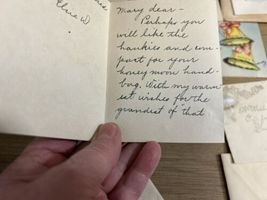 Mary dear -
Perhaps you
will like the
hankies and com-
pact for your
honey moon hand-
bag. With my warm
est wishes for the
grandest of that